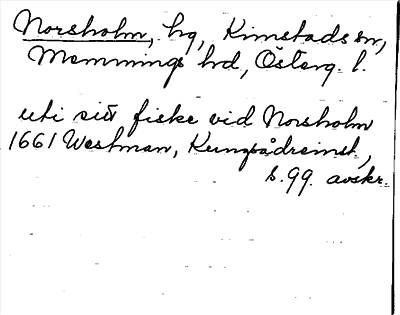 Norsholm, hg, Kimstads sn,
Memmings hd, Österg. l.
uti sitt fiske vid Norsholm
1661 Westman, Kungsådreinst,
s. 99. avskr.